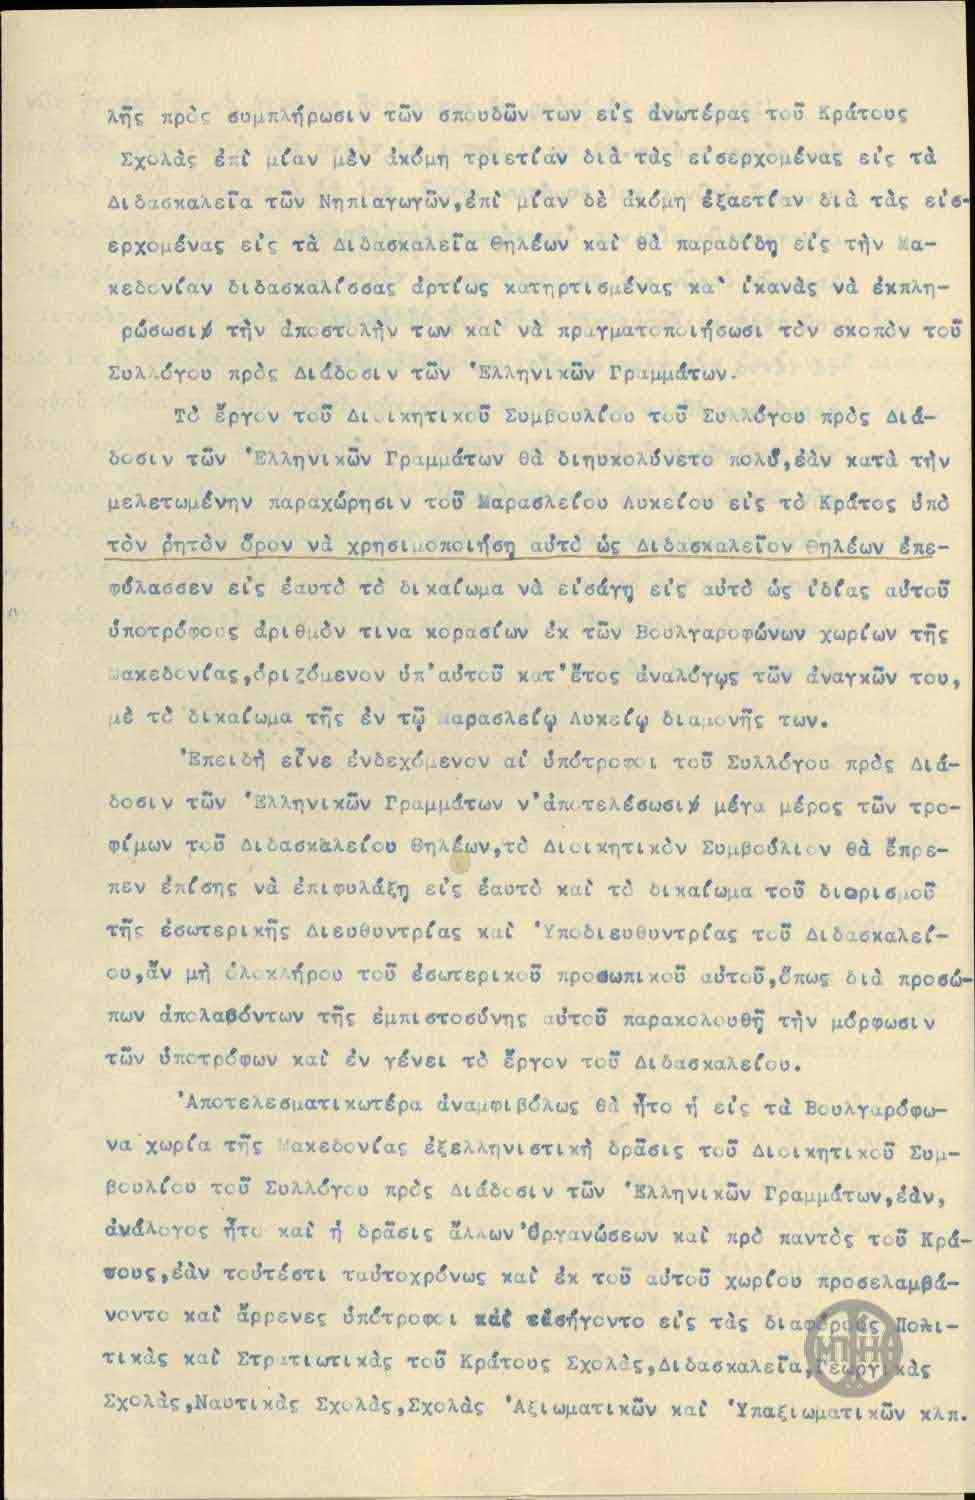 λῆς πρὸς συμπλήρωσιν τῶν σπουδῶν των εἰς ἀνωτέρας τοῦ Κράτους
Σχολὰς ἐπὶ μίαν μὲν ἀκόμη τριετίαν διὰ τὰς εἰσερχομένας εἰς τὰ
Διδασκαλεῖα τῶν Νηπιαγωγῶν,ἐπὶ μίαν δὲ ἀκόμη ἑξαετίαν διὰ τὰς εἰσ-
ερχομένας εἰς τὰ Διδασκαλεῖα Θηλέων καὶ θὰ παραδίδῃ εἰς τὴν Μα-
κεδονίαν διδασκαλίσσας ἀρτίως κατηρτισμένας κα' ἱκανὰς νὰ ἐκπλη-
ρώσωσι τὴν ἀποστολὴν των καὶ νὰ πραγματοποιήσωσι τὸν σκοπὸν τοῦ
Συλλόγου πρὸς Διάδοσιν τῶν Ἑλληνικῶν Γραμμάτων.
Τὸ ἔργον τοῦ Διοικητικοῦ Συμβουλίου τοῦ Συλλόγου πρὸς Διά-
δοσιν τῶν Ἑλληνικῶν Γραμμάτων θὰ διηυκολύνετο πολύ,ἐὰν κατὰ τὴν
μελετωμένην παραχώρησιν τοῦ Μαρασλείου Λυκείου εἰς τὸ Κράτος ὑπὸ
τὸν ῥητὸν ὅρον νὰ χρησιμοποιήσῃ αὐτὸ ὡς Διδασκαλεῖον Θηλέων ἐπε-
φύλασσεν εἰς ἑαυτὸ τὸ δικαίωμα νὰ εἰσάγῃ εἰς αὐτὸ ὡς ἰδίας αὐτοῦ
ὑποτρόφους ἀριθμόν τινα κορασίων ἐκ τῶν Βουλγαροφώνων χωρίων τῆς
Μακεδονίας,ὁριζόμενον ὑπ'αὐτοῦ κατ'ἔτος ἀναλόγως τῶν ἀναγκῶν του,
μὲ τὸ δικαίωμα τῆς ἐν τῷ Μαρασλείῳ Λυκείῳ διαμονῆς των.
Ἐπειδὴ εἶνε ἐνδεχόμενον αἱ ὑπότροφοι τοῦ Συλλόγου πρὸς Διά-
δοσιν τῶν Ἑλληνικῶν Γραμμάτων ν'ἀποτελέσωσι μέγα μέρος τῶν τρο-
φίμων τοῦ Διδασκαλείου Θηλέων,τὸ Διοικητικὸν Συμβούλιον θὰ ἔπρε-
πεν ἐπίσης νὰ ἐπιφυλάξῃ εἰς ἑαυτὸ καὶ τὸ δικαίωμα τοῦ διορισμοῦ
τῆς ἐσωτερικῆς Διευθυντρίας καὶ Ὑποδιευθυντρίας τοῦ Διδασκαλεί-
ου,ἂν μὴ ὁλοκλήρου τοῦ ἐσωτερικοῦ προσωπικοῦ αὐτοῦ,ὅπως διὰ προσώ-
πων ἀπολαβόντων τῆς ἐμπιστοσύνης αὐτοῦ παρακολουθῇ τὴν μόρφωσιν
τῶν ὑποτρόφων καὶ ἐν γένει τὸ ἔργον τοῦ Διδασκαλείου.
Ἀποτελεσματικωτέρα ἀναμφιβόλως θὰ ἦτο ἡ εἰς τὰ Βουλγαρόφω-
να χωρία τῆς Μακεδονίας ἐξελληνιστικὴ δρᾶσις τοῦ Διοικητικοῦ Συμ-
βουλίου τοῦ Συλλόγου πρὸς Διάδοσιν τῶν Ἑλληνικῶν Γραμμάτων,ἐάν,
ἀνάλογος ἦτο καὶ ἡ δρᾶσις ἄλλων Ὀργανώσεων καὶ πρὸ παντὸς τοῦ Κρά-
τους,ἐὰν τοὐτέστι ταὐτοχρόνως καὶ ἐκ τοῦ αὐτοῦ χωρίου προσελαμβά-
νοντο καὶ ἄρρενες ὑπότροφοι καὶ εἰσήγοντο εἰς τὰς διαφόρους Πολι-
τικὰς καὶ Στρατιωτικὰς τοῦ Κράτους Σχολάς,Διδασκαλεῖα,Γεωργικὰς
Σχολάς,Ναυτικὰς Σχολάς,Σχολὰς Ἀξιωματικῶν καὶ Ὑπαξιωματικῶν κλπ.